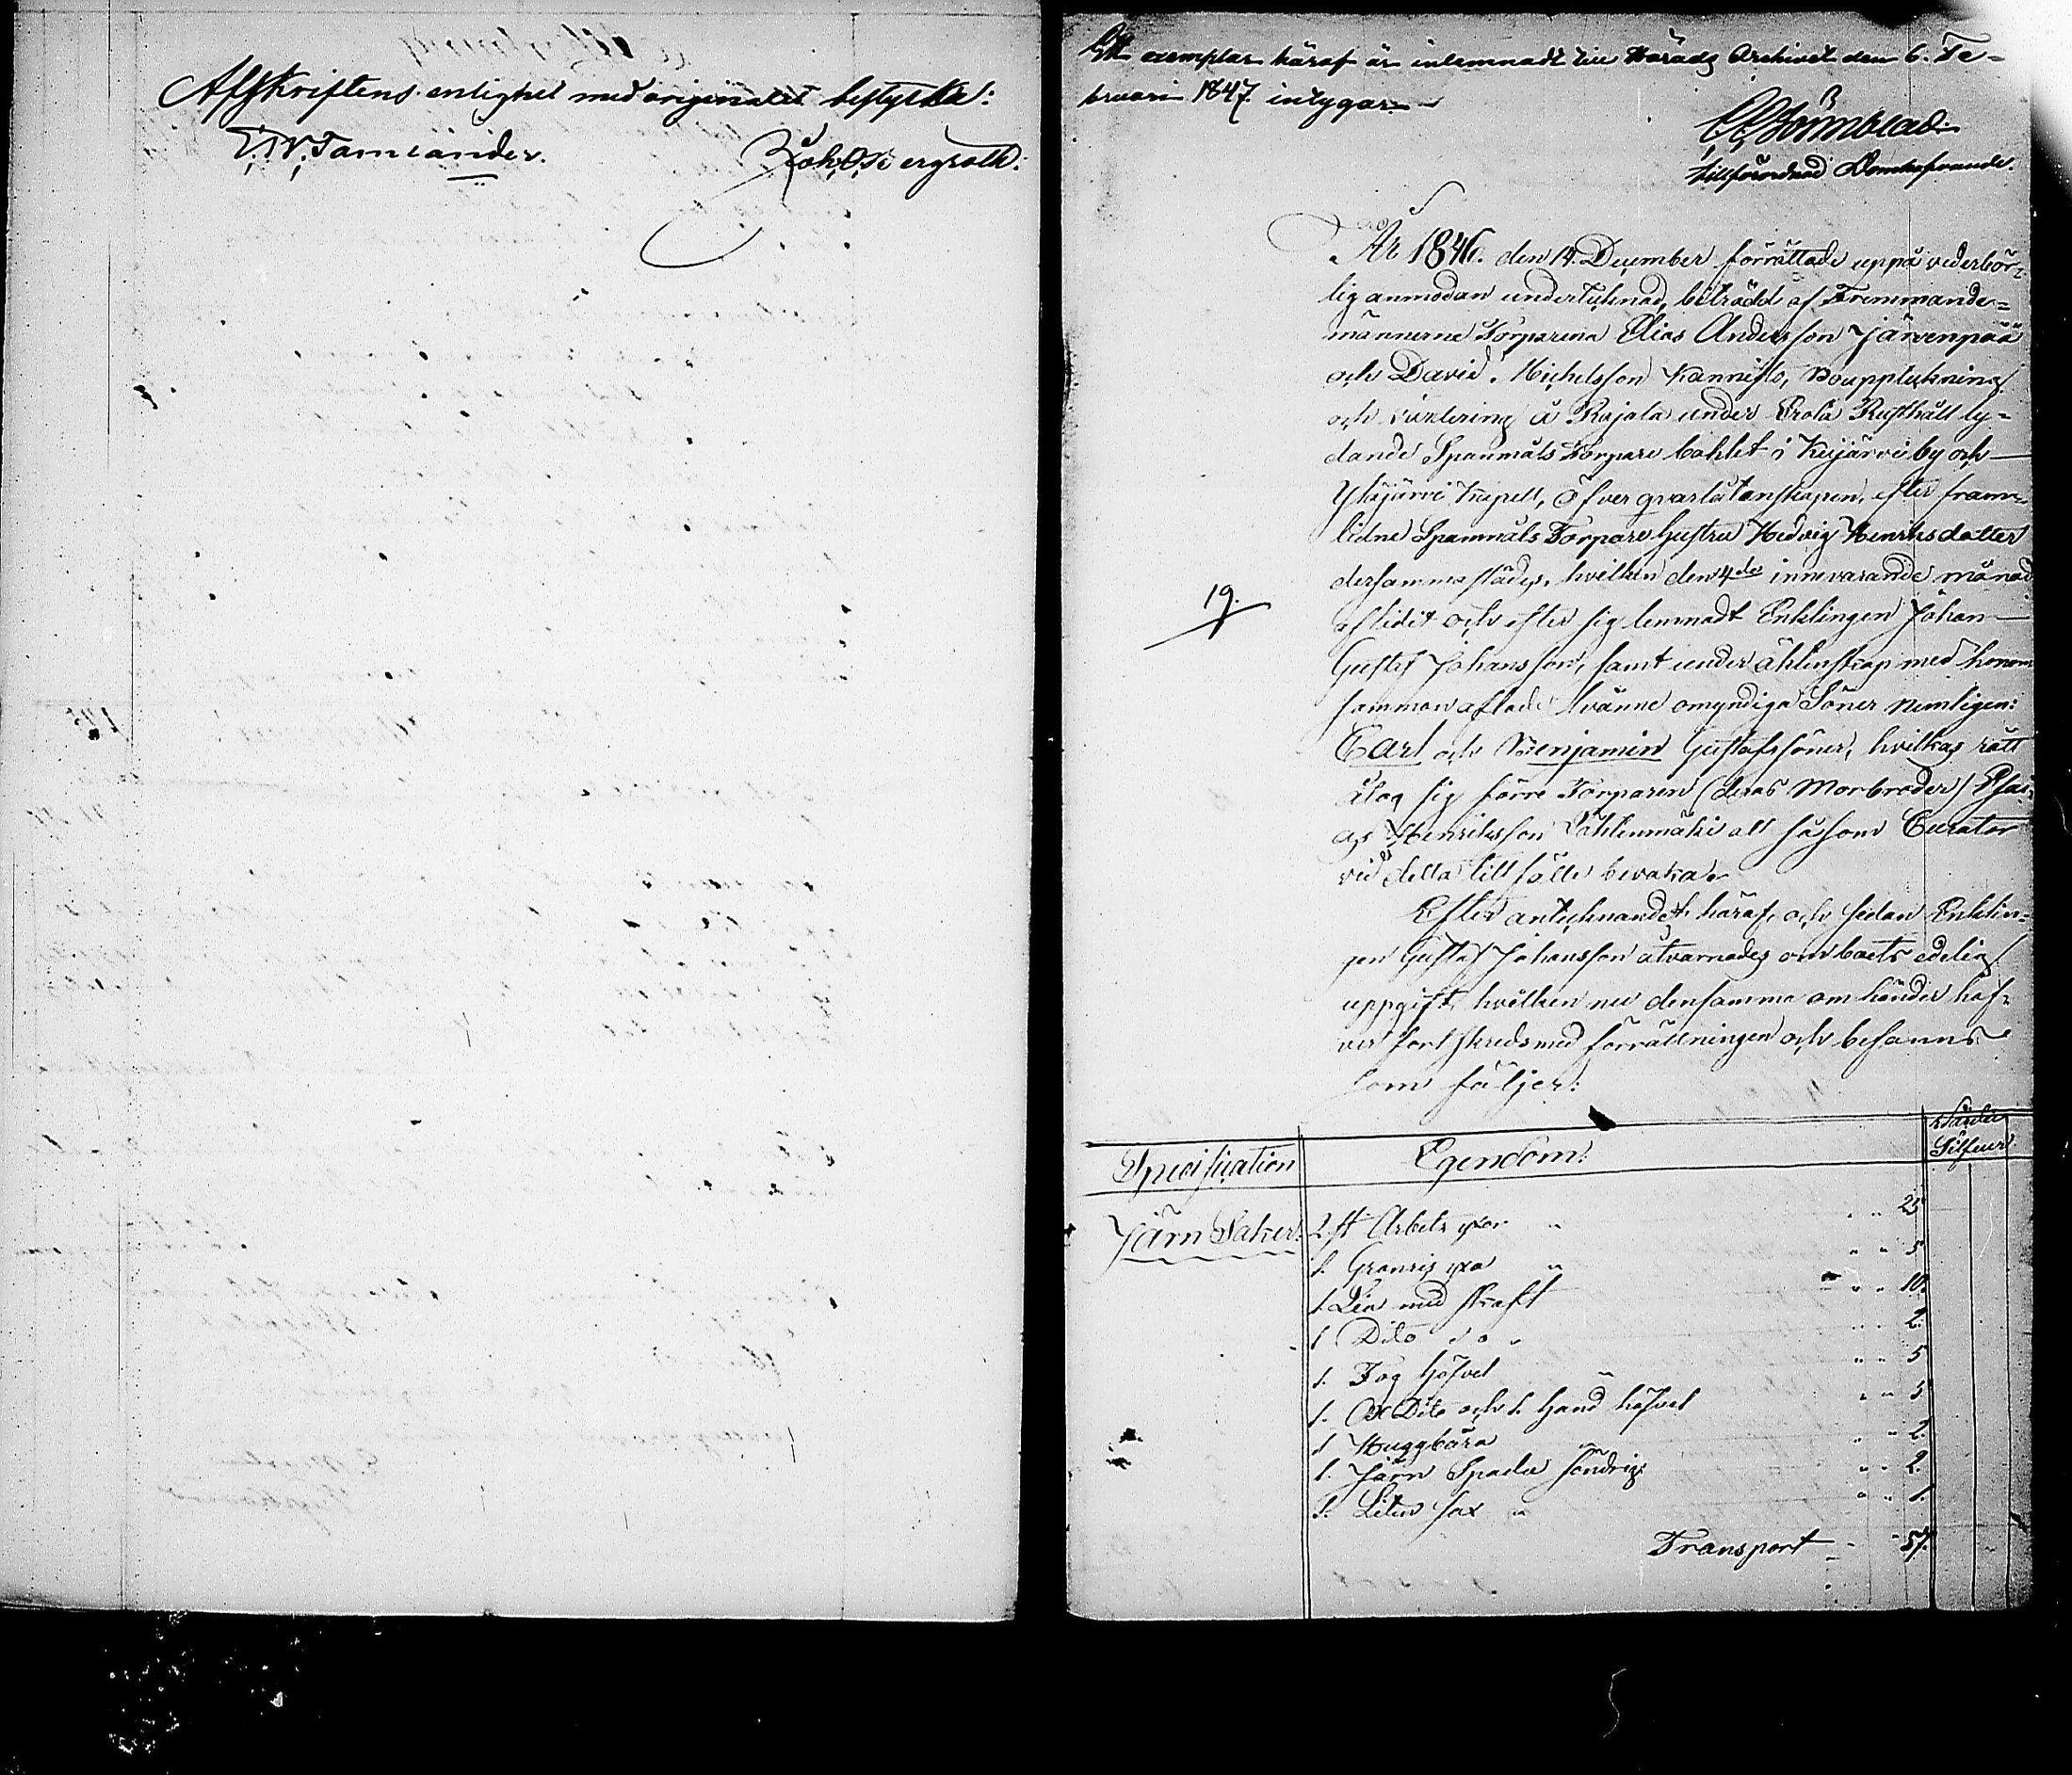 Afskriftens enlighet med originalet bestyrka:
E. W. Tamlander. Joh. O. Bergroth:
Ett exemplar häraf är inlemnadt till Härads Archivet den 6. Fe-
bruari 1847. intygar
tillförordnad Domhafvande.
År 1846. den 14. December förrättade uppå vederbör-
lig anmodan undertecknad, biträdd af Fremmande-
männerne Torparena Elias Andersson Järvenpää
och David Michelsson Kannisto, Bouppteckning
och värdering å Rajala under Erola Rusthåll ly-
dande Spanmåls Torpare bohlet i Keijärvi by och
Ylöjärvi Kapell, öfver qvarlåtenskapen, efter fram-
lidne Spanmåls Torpare hustru Hedvig Henriksdotter
dersammastädes, hvilken den 4de innevarande månad
aflidit och efter sig lemnadt Enklingen Johan
19.
Gustaf Johansson, samt under äktenskap med honom
sammanaflade tvänne omyndiga Söner nemligen:
Carl och Benjamin Gustafssöner, hvilkas rätt
åtog sig förre Torparen (deras Morbroder) Esai-
as Henriksson Lähteenmäki att såsom Curator
vid detta tillfälle bevaka.
Efter antecknandet häraf, och sedan Enklin-
gen Gustaf Johansson åtvarnades om boets edelig
uppgift, hvilken nu densamma om händer haf-
ver fortskreds med förrättningen och befanns
som följer:
Specification Egendom: Silfver
Järn Saker: 2 st Arbets yxor " " " 25
1. Granris yxa " " " 5
1 Lia med skaft " " 10.
1 Dito d o " " " 2.
1. Fog höfvel " " 5
1. Ox Dito och 1. hand höfvel " " 5
1 Huggbära " " 2.
1. Järn Spada söndrig " " 2.
1. Liten sax " " " 1.
Transport " 57.